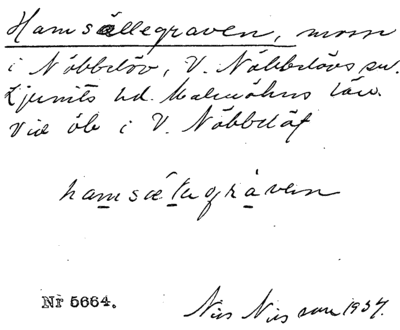 Hamsællegraven, mosse
i Nöbbelöv, V. Nöbbelövs sn.
Ljunits hd. Malmöhus län.
Vid öb i V. Nöbbelöf
hamsætegráven
Nr 5664. Nils Nilsson 1934.